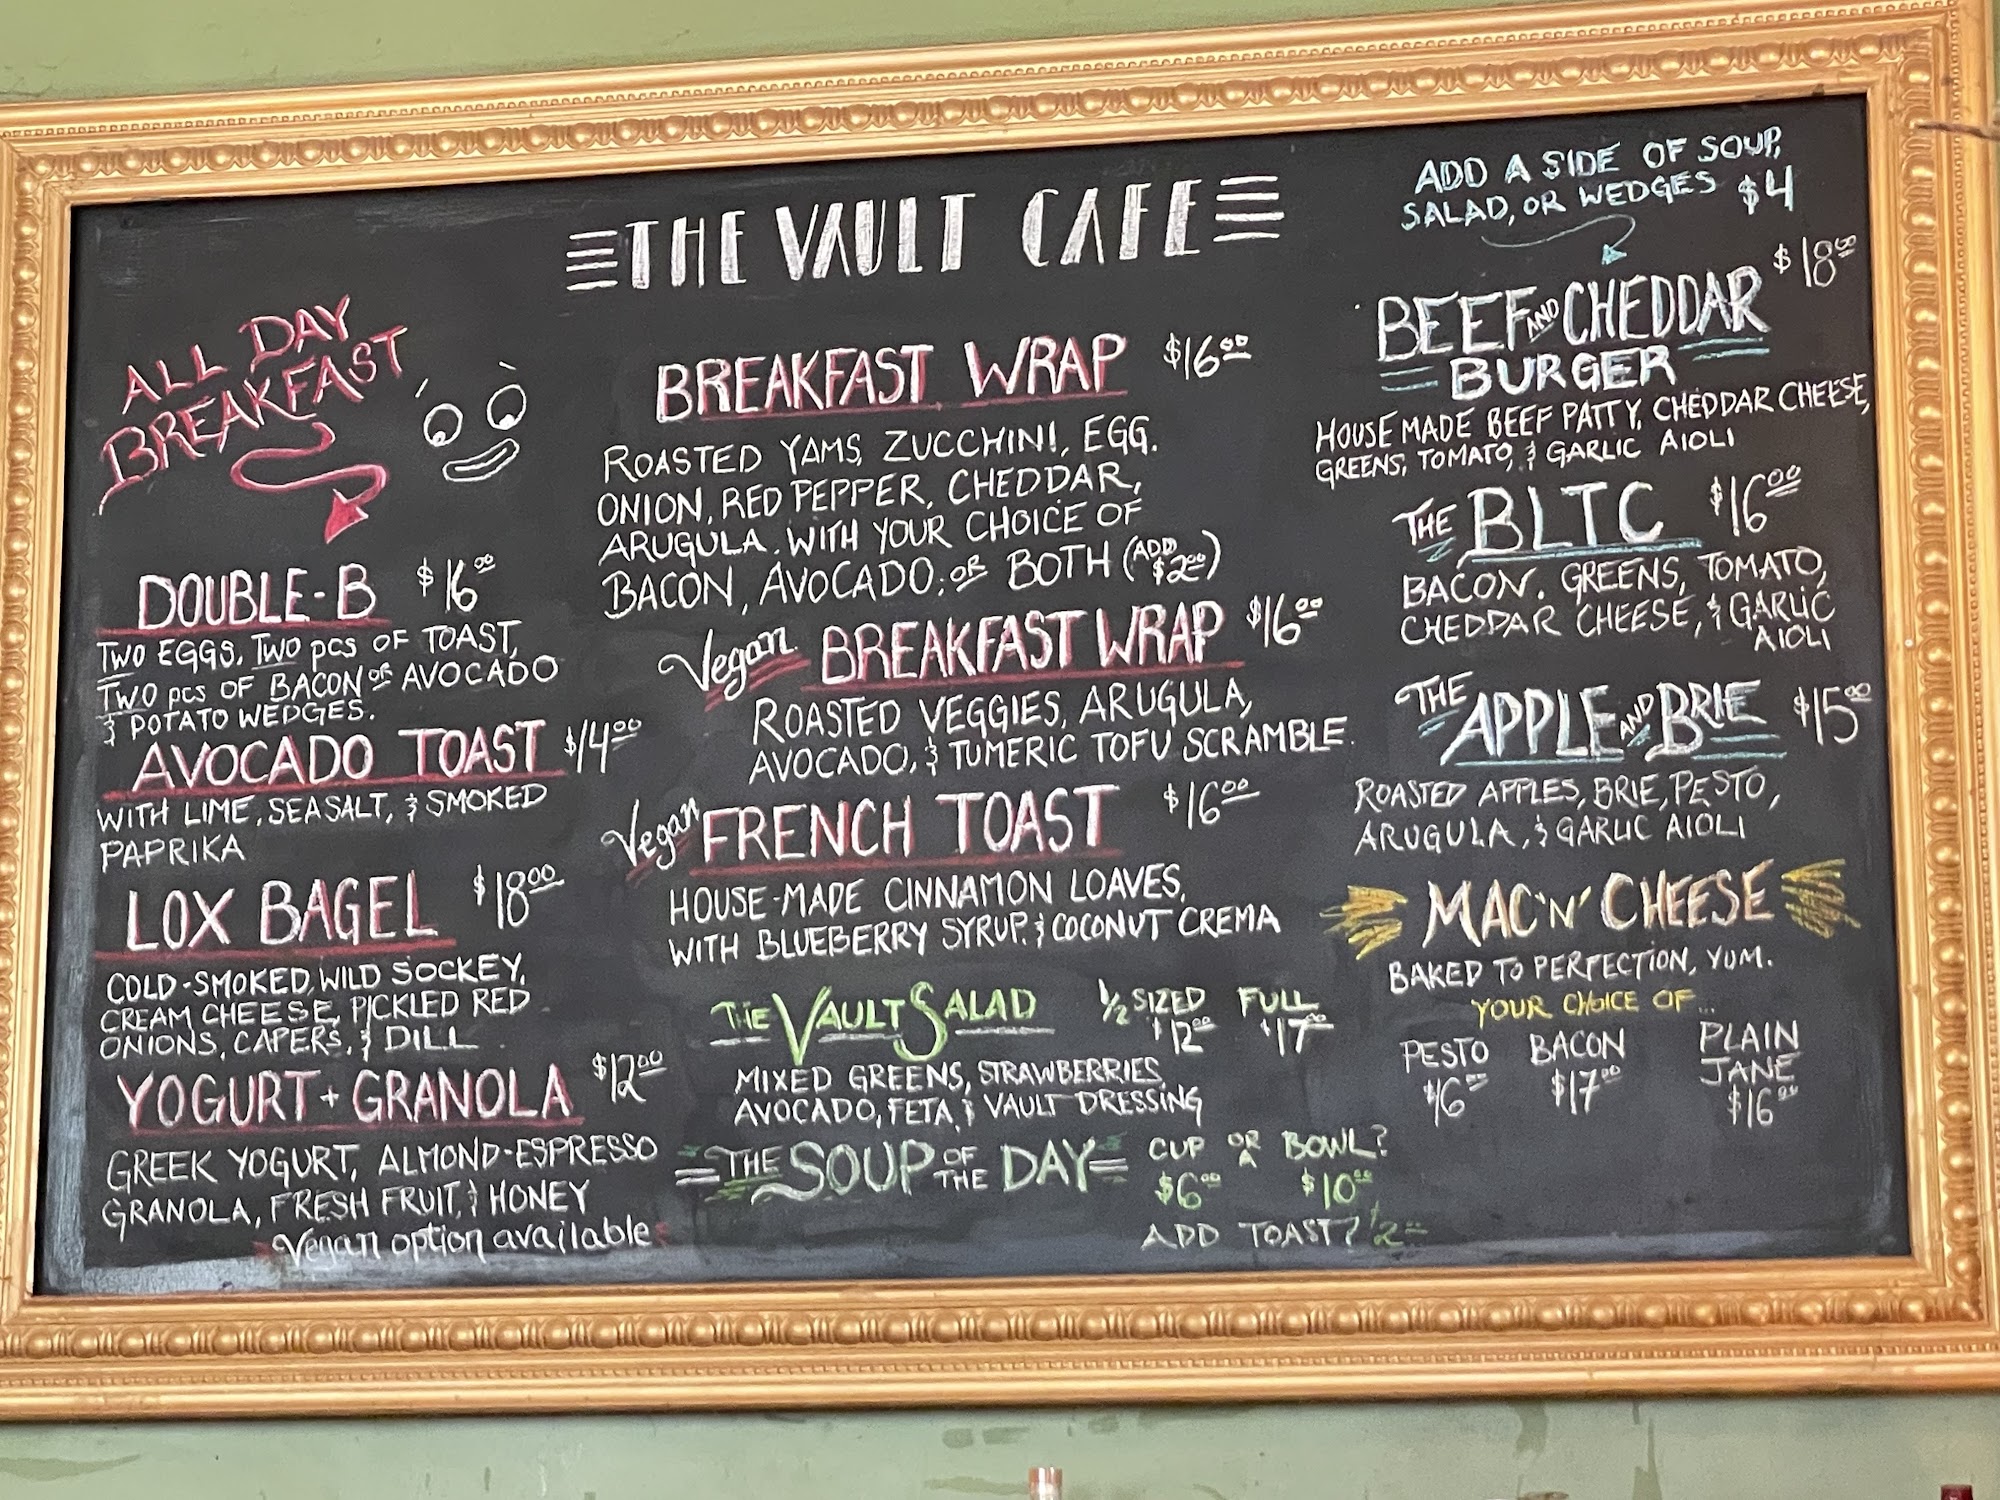 THE VAULT CAFE
ALL DAY
BREAKFAST
DOUBLE-B $16.00
TWO EGGS, TWO pcs OF TOAST,
TWO pcs OF BACON OR AVOCADO
& POTATO WEDGES.
AVOCADO TOAST $14.00
WITH LIME, SEA SALT, & SMOKED
PAPRIKA
LOX BAGEL $18.00
COLD-SMOKED, WILD SOCKEY,
CREAM CHEESE, PICKLED RED
ONIONS, CAPERS, & DILL
YOGURT + GRANOLA $12.00
GREEK YOGURT, ALMOND-ESPRESSO
GRANOLA, FRESH FRUIT, & HONEY
Vegan option available
BREAKFAST WRAP $16.00
ROASTED YAMS, ZUCCHINI, EGG.
ONION, RED PEPPER, CHEDDAR,
ARUGULA. WITH YOUR CHOICE OF
BACON, AVOCADO, OR BOTH (ADD $2.00)
Vegan BREAKFAST WRAP $16.00
ROASTED VEGGIES, ARUGULA,
AVOCADO, & TUMERIC TOFU SCRAMBLE.
Vegan FRENCH TOAST $16.00
HOUSE-MADE CINNAMON LOAVES,
WITH BLUEBERRY SYRUP, & COCONUT CREMA
THE VAULT SALAD 1/2 SIZED $12.00 FULL $17.00
MIXED GREENS, STRAWBERRIES,
AVOCADO, FETA, & VAULT DRESSING
THE SOUP OF THE DAY CUP OR A BOWL?
$6.00 $10.00
ADD TOAST? $2.00
ADD A SIDE OF SOUP,
SALAD, OR WEDGES $4
BEEF AND CHEDDAR $18.00
BURGER
HOUSE MADE BEEF PATTY, CHEDDAR CHEESE,
GREENS, TOMATO, & GARLIC AIOLI
THE BLTC $16.00
BACON. GREENS, TOMATO,
CHEDDAR CHEESE, & GARLIC
AIOLI
THE APPLE AND BRIE $15.00
ROASTED APPLES, BRIE, PESTO,
ARUGULA, & GARLIC AIOLI
MAC 'N' CHEESE
BAKED TO PERFECTION, YUM.
YOUR CHOICE OF...
PESTO BACON PLAIN
JANE
$16.00 $17.00 $16.00